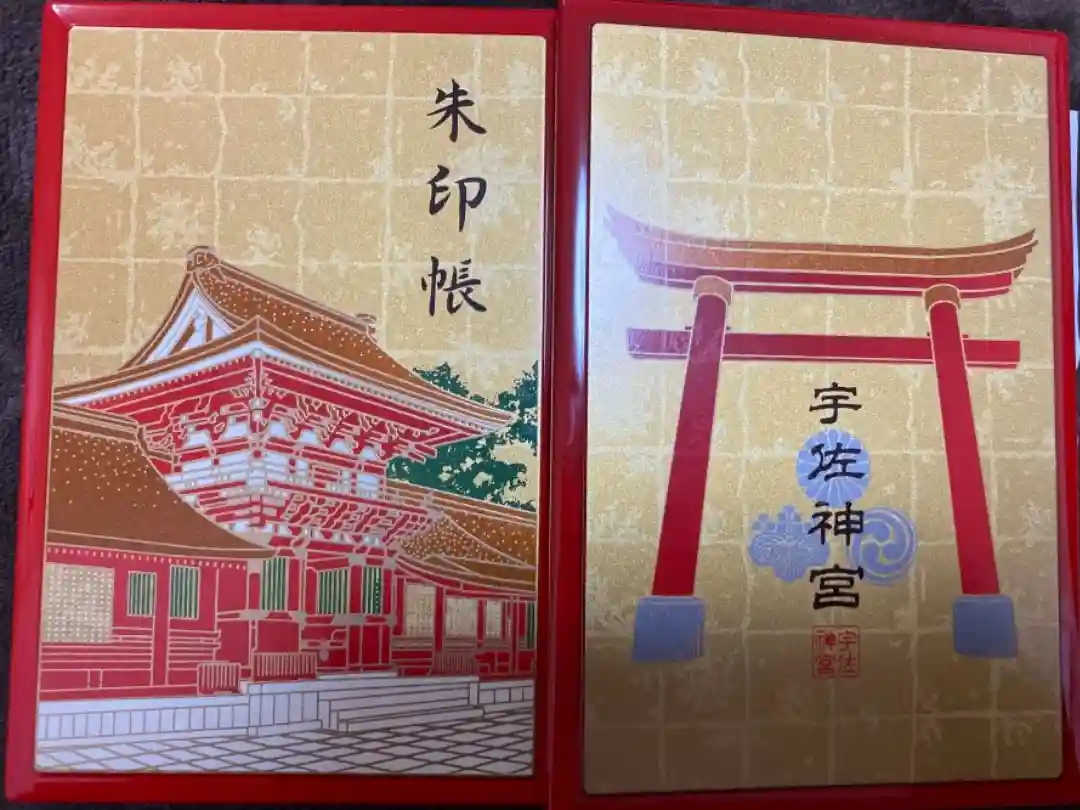 朱印帳
宇佐神宮
宇佐神宮